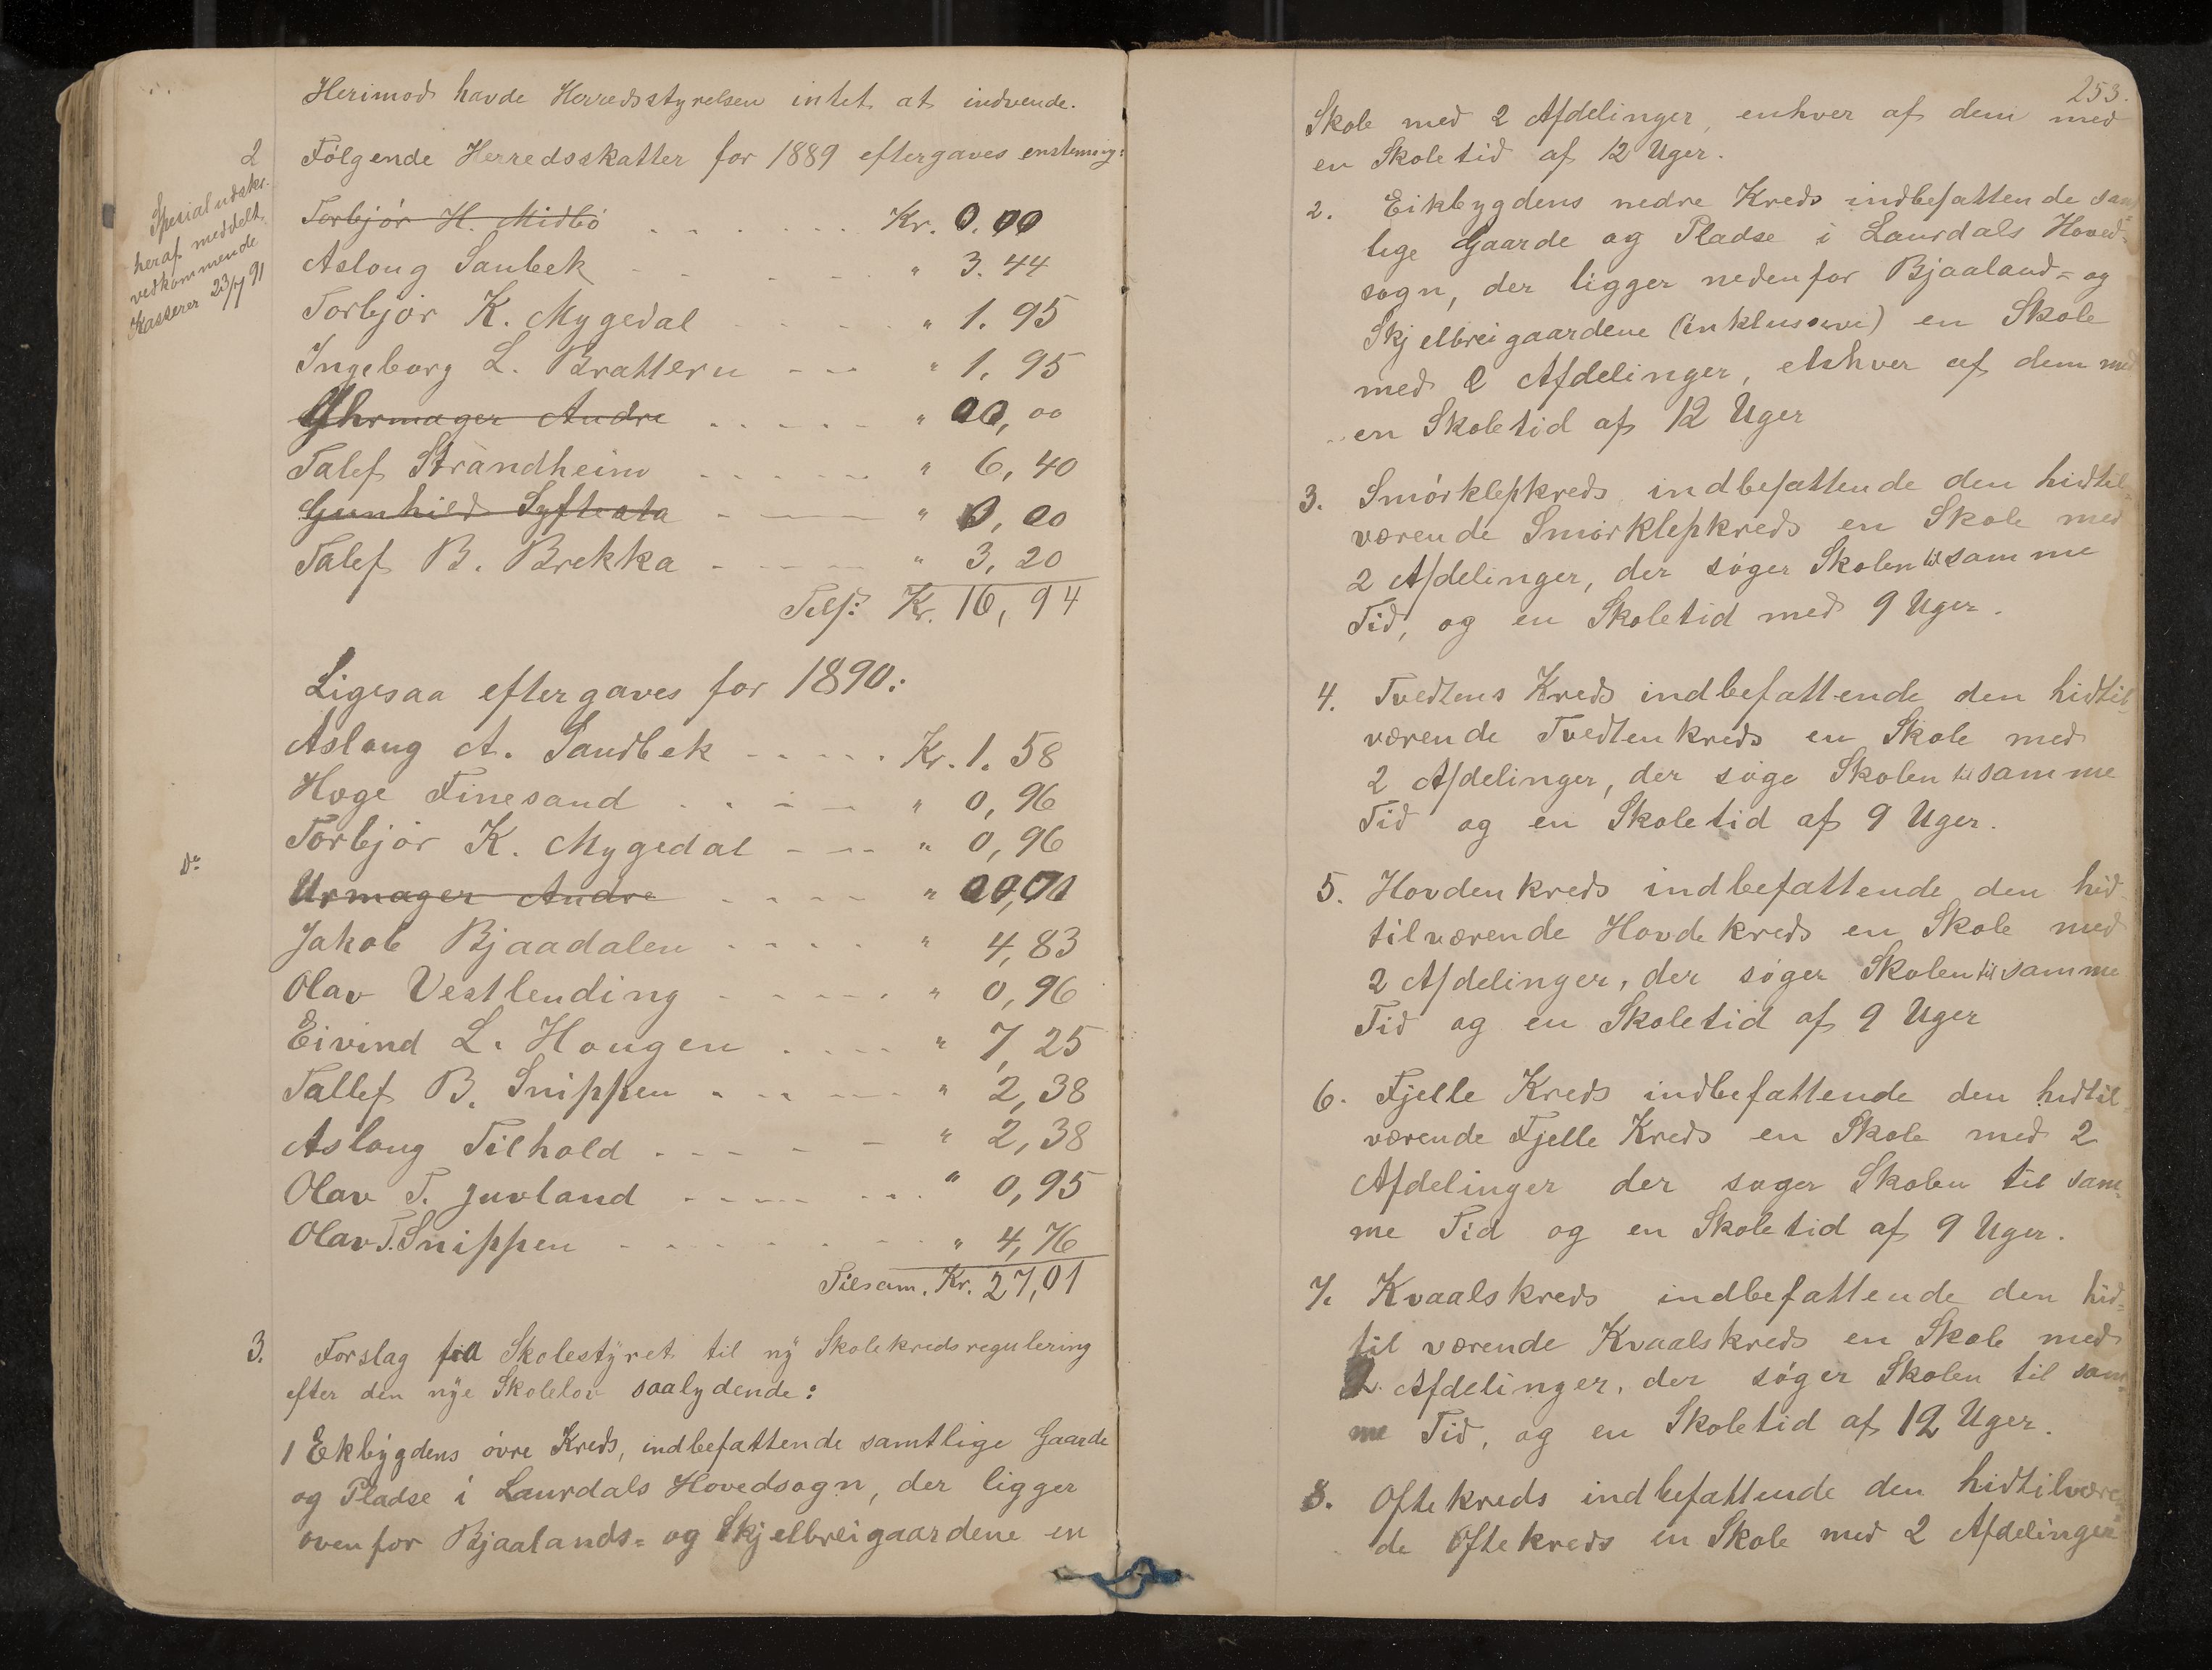 Herimod havde Herredsstyrelsen intet at indvende.
2
Følgende Herredsskatter for 1889 eftergaves enstemmig:
Spesialudskr.
heraf meddelt
vedkommende
Kasserer 23/7 91
Torbjør H. Midbö . . . . . . Kr. 0.00
Asloug Saubek - - - - - " 3.44
Torbjør K. Mygedal - - - - " 1.95
Ingeborg L. Brattern - - - " 1.95
Uhrmager Andre . . . . . " 00,00
Talef Strandheim . . . . . . " 6,40
Gunhild Syftesta - - - " 0,00
Talef B. Brekka - - - - " 3,20
Tils: Kr. 16,94
Ligesaa eftergaves for 1890:
Aslaug A. Sandbek - - - - . Kr. 1.58
Hoge Finesand . . - - " 0,96
Torbjør K. Mygedal - - - " 0,96
Do
Urmager Andre - - - - " 00,00
Jakob Bjaadalen . . . . " 4,83
Olav Vestlending - - - - . " 0,96
Eivind L. Hougen . . . . " 7,25
Tallef B. Snippen - - - - " 2,38
Aslaug Tilhold . - - - - " 2,38
Olav T. Juvland - - - - . . . " 0,95
Olav T. Snippen - - - - - - - " 4,76
Tilsam. Kr. 27,01
3. Forslag fra Skolestyret til ny Skolekredsregulering
efter den nye Skolelov saalydende:
1 Ekbygdens øvre Kreds, indbefattende samtlige Gaarde
og Pladse i Laurdals Hovedsogn, der ligger
ovenfor Bjaalands= og Skjelbreigaardene en
253.
Skole med 2 Afdelinger, enhver af dem med
en Skoletid af 12 Uger.
2. Eikbygdens nedre Kreds indbefattende sam=
lige Gaarde og Pladse i Laurdals Hoved=
sogn, der ligger nedenfor Bjaaland= og
Skjelbreigaardene (inklusive) en Skole
med 2 Afdelinger, enhver af dem med
en Skoletid af 12 Uger
3. Smørklepkreds indbefattende den hidtil=
værende Smørklepkreds en Skole med
2 Afdelinger, der søger Skolen til samme
Tid, og en Skoletid med 9 Uger.
4. Tvedtens Kreds indbefattende den hidtil=
værende Tvedtenkreds en Skole med
2 Afdelinger, der søge Skolen til samme
Tid og en Skoletid af 9 Uger.
5. Hovdenkreds indbefattende den hid=
tilværende Hovdekreds en Skole med
2 Afdelinger, der søger Skolen til samme
Tid og en Skoletid af 9 Uger
6. Fjelle Kreds indbefattende den hidtil=
værende Fjelle Kreds en Skole med 2
Afdelinger der søger Skolen til sam=
me Tid og en Skoletid af 9 Uger.
7. Kvaalskreds indbefattende den hid=
tilværende Kvaalskreds en Skole med
2 Afdelinger, der søger Skolen til sam=
me Tid, og en Skoletid af 12 Uger.
8. Oftekreds indbefattende den hidtilvære
de Oftekreds en Skole med 2 Afdelinger